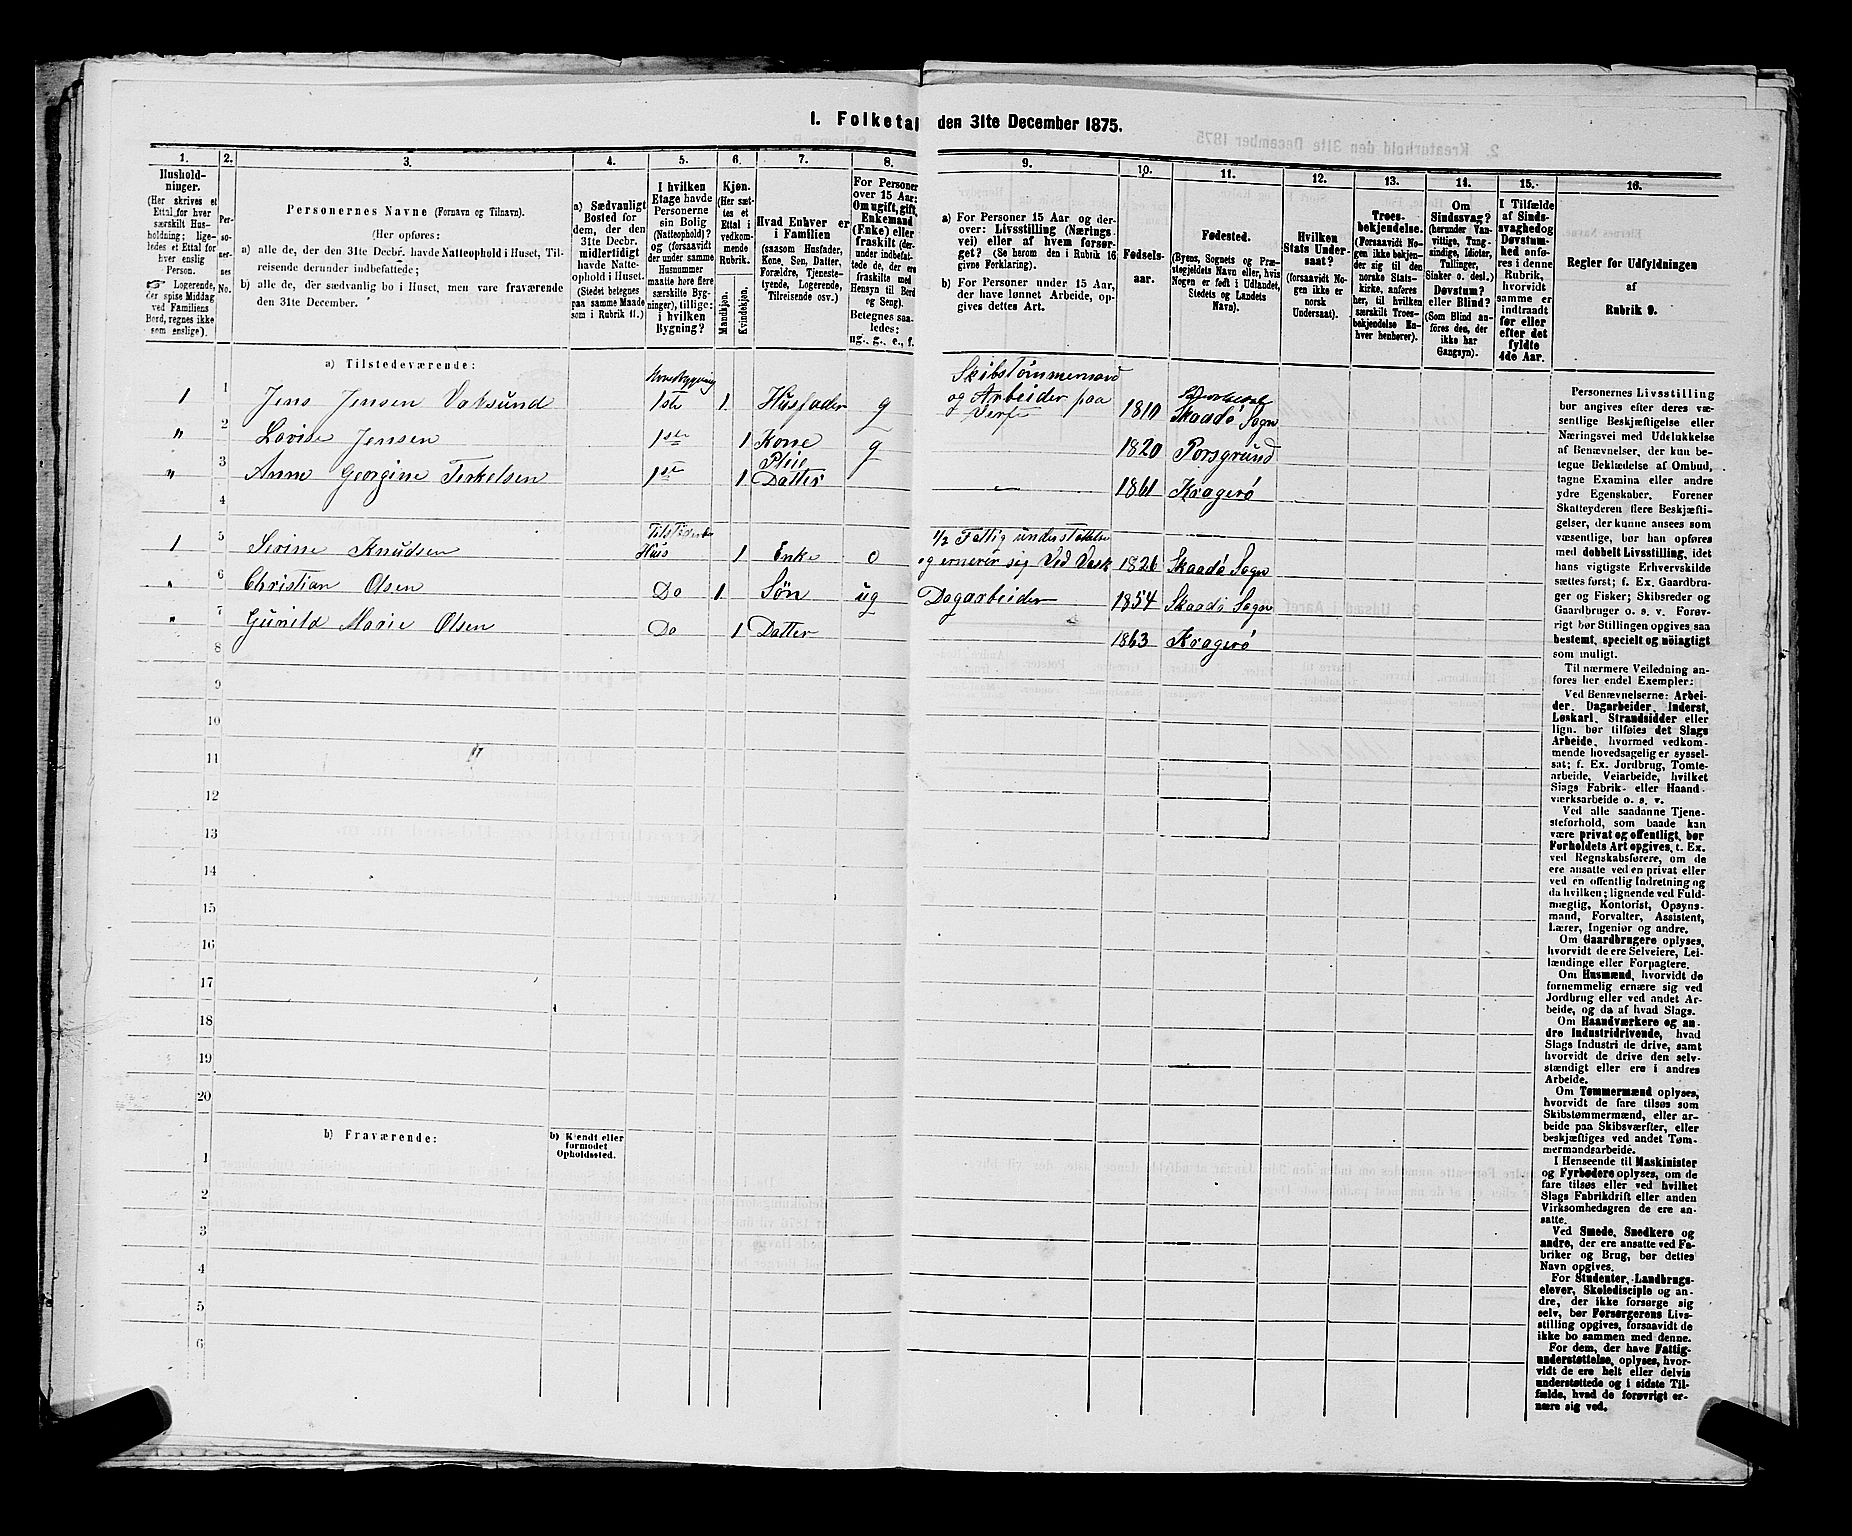 1. Folketal den 31te December 1875.
1. 2. 3. 4. 5. 6. 7. 8. 9. 10. 11. 12. 13. 14. 15. 16.
Husholdninger.
(Her skrives et
Ettal for hver
særskilt Husholdning;
ligeledes et Ettal for
hver enslig
Person.
Logerende,
der spise Middag
ved Familiens
Bord, regnes ikke
som enslige).
Personernes No.
Personernes Navne (Fornavn og Tilnavn).
(Her opføres:
a) alle de, der den 31te Decbr. havde Natteophold i Huset, Tilreisende derunder indbefattede;
b) alle de, der sædvanlig bo i Huset, men vare fraværende
den 31te December.
a) Sædvanligt
Bosted for
dem, der den
31te Decbr.
midlertidigt
havde Natteophold i Huset.
(Stedet betegnes
paa samme Maade
som i Rubrik 11.)
I hvilken
Etage havde
Personerne
sin Bolig
(Natteophold)?
og (forsaavidt
der under samme
Husnummer
maatte høre flere
særskilte Bygninger), tillige:
i hvilken
Bygning?
Kjøn.
(Her sættes et
Ettal i
vedkommende
Rubrik.
Mandkjøn.
Kvindekjøn.
Hvad Enhver er
i Familien
(saasom Husfader,
Kone, Søn, Datter,
Forældre, Tjenestetyende, Logerende,
Tilreisende osv.)
For Personer
over 15 Aar:
Om ugift, gift,
Enkemand
(Enke) eller
fraskilt (derunder indbefattede de, der ere
fraskilte med
Hensyn til Bord
og Seng).
Betegnes saaledes:
ug., g., e., f.
a) For Personer 15 Aar og derover: Livsstilling (Næringsvei) eller af hvem forsørget? (Se herom den i Rubrik 16
givne Forklaring).
b) For Personer under 15 Aar,
der have lønnet Arbeide, opgives dettes Art.
Fødselsaar.
Fødested.
(Byens, Sognets og Præstegjeldets Navn eller, hvis
Nogen er født i Udlandet,
Stedets og Landets
Navn).
Hvilken
Stats Undersaat?
(forsaavidt Nogen ikke er
norsk
Undersaat).
Troesbekjendelse.
(Forsaavidt Nogen ikke bekjender sig til den
norske Statskirke, anføres
her, til hvilken
særskilt Troesbekjendelse Enhver henhører).
Om
Sindssvag?
(herunder Vanvittige, Tungsindige, Idioter,
Tullinger,
Sinker o. desl.)
Døvstum?
eller Blind?
(Som Blind anføres den, der
ikke har
Gangsyn).
I Tilfælde
af Sindssvaghed og
Døvstumhed anføres i denne
Rubrik,
hvorvidt
samme er
indtraadt
før eller
efter det
fyldte
4de Aar.
Regler for Udfyldningen
af
Rubrik 9.
a) Tilstedeværende:
1 1 Jens Jensen Vatsund 1ste 1 Husfader g Skibstømmermand og Arbeider paa Verft 1810 Skaadø Sogn
" 2 Lovise Jensen 1ste 1 Kone g 1820 Porsgrund
" 3 Anne Georgine Terkelsen 1ste 1 Pleie Datter 1861 Kragerø
4
1 5 Sevine Knudsen Hus 1 Enke 1/2 Fattig understøttelse og ernerer sig Ved Vask 1826 Skaadø Sogn
" 6 Christian Olsen Do 1 Søn ug Dagarbeider 1854 Skaadø Sogn
" 7 Gunild Marie Olsen Do 1 Datter 1863 Kragerø
8
9
10
11
12
13
14
15
16
17
18
19
20
b) Fraværende:
b) Kjendt eller
formodet
Opholdssted.
1
2
3
4
5
6
Personernes Livsstilling
bør angives efter deres væsentlige Beskjæftigelse eller
Næringsvei med Udelukkelse
af Benævnelser, der kun betegne Beklædelse af Ombud,
tagne Examina eller andre
ydre Egenskaber. Forener
Skatteyderen flere Beskjæftigelser, der kunne ansees som
væsentlige, bør han opføres
med dobbelt Livsstilling, idet
hans vigtigste Erhvervskilde
sættes først; f. Ex. Gaardbruger og Fisker; Skibsreder og
Gaardbruger o. s. v. Forøvrigt bør Stillingen opgives saa
bestemt, specielt og nøiagtigt
som muligt.
Til nærmere Veiledning anføres her endel Exempler:
Ved Benævnelserne: Arbeider, Dagarbeider, Inderst,
Løskarl, Strandsidder eller
lign. bør tilføies det Slags
Arbeide, hvormed vedkommende hovedsagelig er sysselsat; f. Ex. Jordbrug, Tomtearbeide, Veiarbeide, hvilket
Slags Fabrik- eller Haandværksarbeide o. s. v.
Ved alle saadanne Tjenesteforhold, som baade kan
være privat og offentligt, bør
Forholdets Art opgives, t. Ex.
ved Regnskabsførere, om de
ere ansatte ved en privat eller
ved en offentlig Indretning og
da hvilken; lignende ved Fuldmægtig, Kontorist, Opsynsmand, Forvalter, Assistent,
Lærer, Ingeniør og andre.
Om Gaardbrugere oplyses,
hvorvidt de ere Selveiere, Leilændinge eller Forpagtere.
Om Husmænd, hvorvidt de
fornemmelig ernære sig ved
Jordbrug eller ved andet Arbeide, og da af hvad Slags.
Om Haandværkere og andre Industridrivende, hvad
Slags Industri de drive, samt
hvorvidt de drive den selvstændigt eller ere i andres
Arbeide.
Om Tømmermænd oplyses,
hvorvidt de fare tilsøs som
Skibstømmermænd, eller arbeide paa Skibsværfter, eller
beskjæftiges ved andet Tømmermandsarbeide.
I Henseende til Maskinister
og Fyrbødere oplyses, om de
fare tilsøs eller ved hvilket
Slags Fabrikdrift eller anden
Virksomhedsgren de ere ansatte.
Ved Smede, Snedkere og
andre, der ere ansatte ved Fabriker og Brug, bør dettes
Navn opgives.
For Studenter, Landbrugselever, Skoledisciple og andre, der ikke forsørge sig
selv, bør Forsørgerens Livsstilling opgives, forsaavidt de
ikke bo sammen med denne.
For dem, der have Fattigunderstøttelse, oplyses, hvorvidt de ere helt eller delvis
understøttede og i sidste Tilfælde, hvad de forøvrigt ernære sig ved.